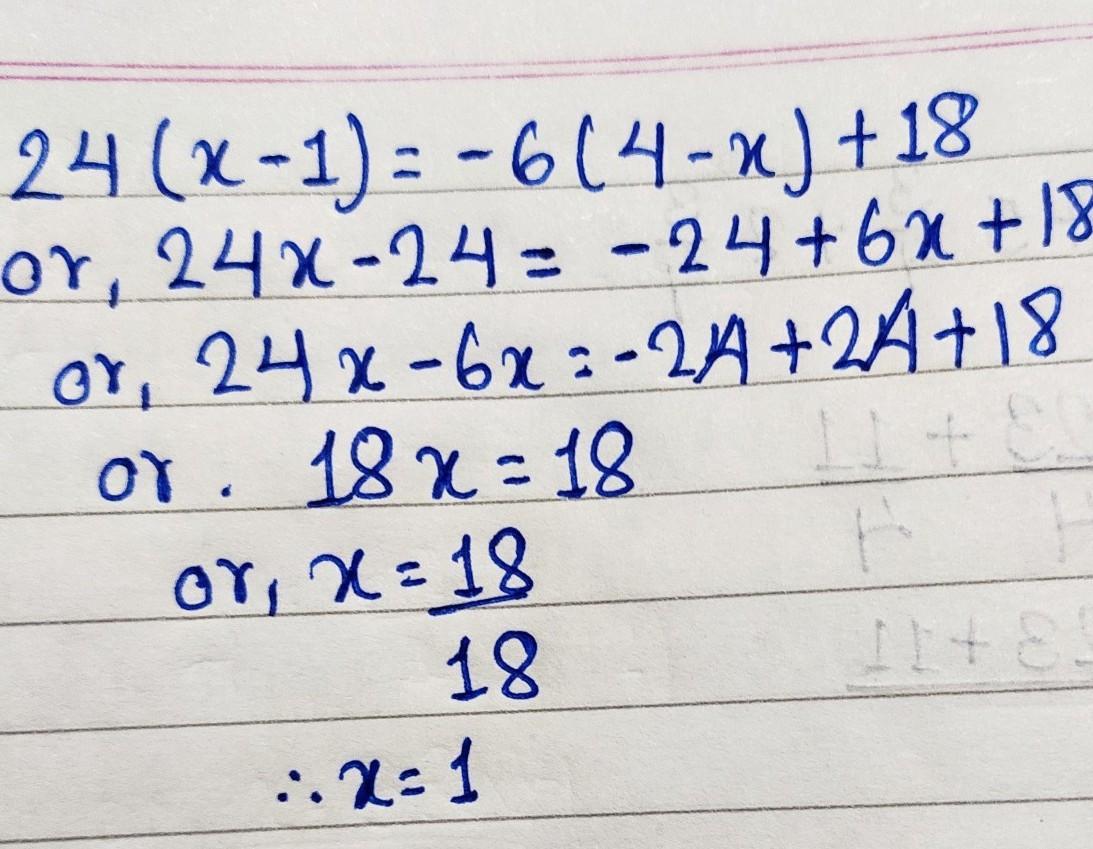 24(x-1)= -6(4-x)+18
or, 24x-24= -24+6x+18
or, 24x-6x=-24+24+18
or. 18x=18
or, x=18
18
∴x=1